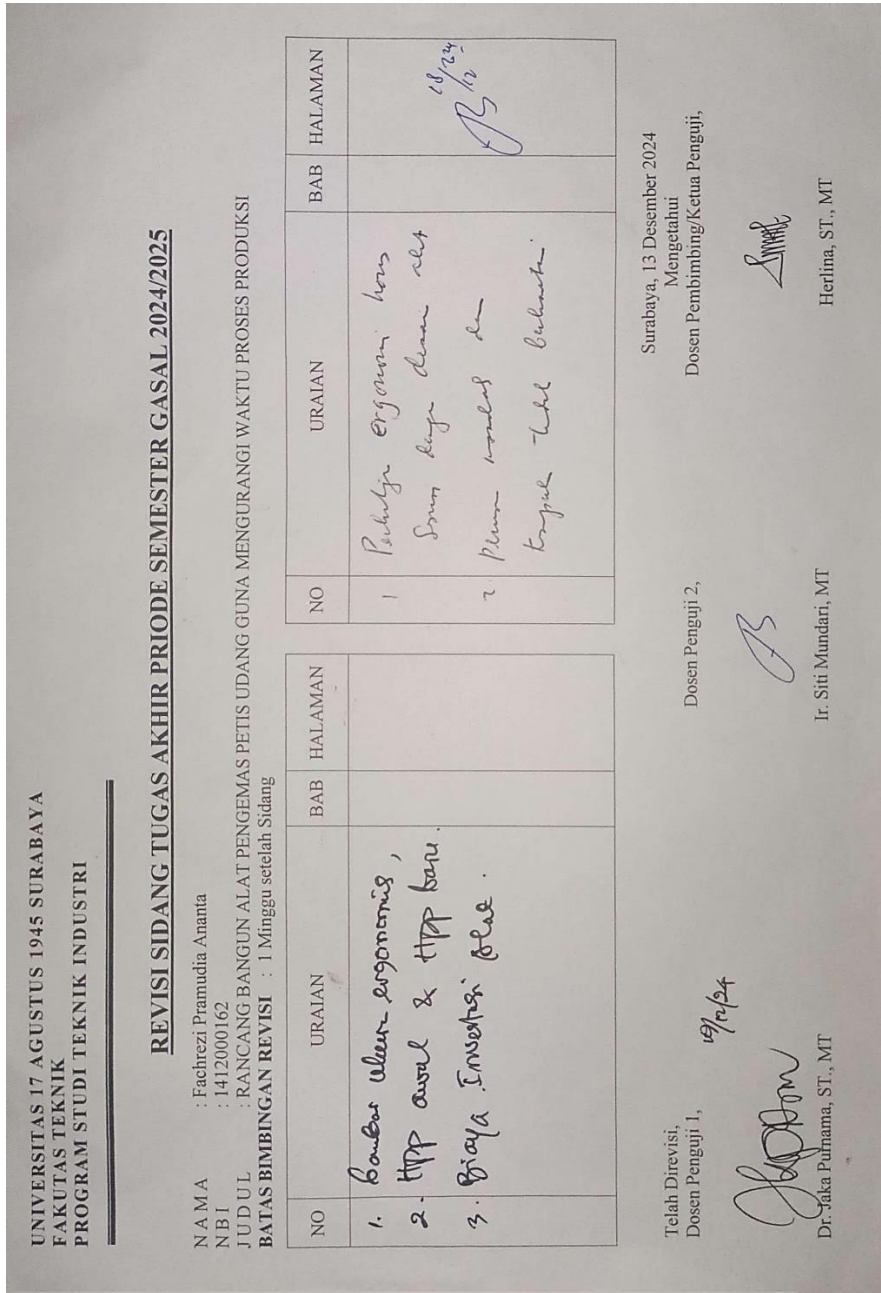 UNIVERSITAS 17 AGUSTUS 1945 SURABAYA
FAKUTAS TEKNIK
PROGRAM STUDI TEKNIK INDUSTRI
REVISI SIDANG TUGAS AKHIR PRIODE SEMESTER GASAL 2024/2025
N A M A : Fachrezi Pramudia Ananta
N B I : 1412000162
J U D U L : RANCANG BANGUN ALAT PENGEMAS PETIS UDANG GUNA MENGURANGI WAKTU PROSES PRODUKSI
BATAS BIMBINGAN REVISI : 1 Minggu setelah Sidang
NO URAIAN BAB HALAMAN
1. Gambar ergonomis,
2. Hpp awal & Hpp baru.
3. Biaya Investasi Alat.
NO URAIAN BAB HALAMAN
1 ergonomi harus
alat
2
18/12 24
Surabaya, 13 Desember 2024
Mengetahui
Telah Direvisi,
Dosen Penguji 1,
19/12/24
Dr. Jaka Purnama, ST., MT
Dosen Penguji 2,
Ir. Siti Mundari, MT
Dosen Pembimbing/Ketua Penguji,
Herlina, ST., MT